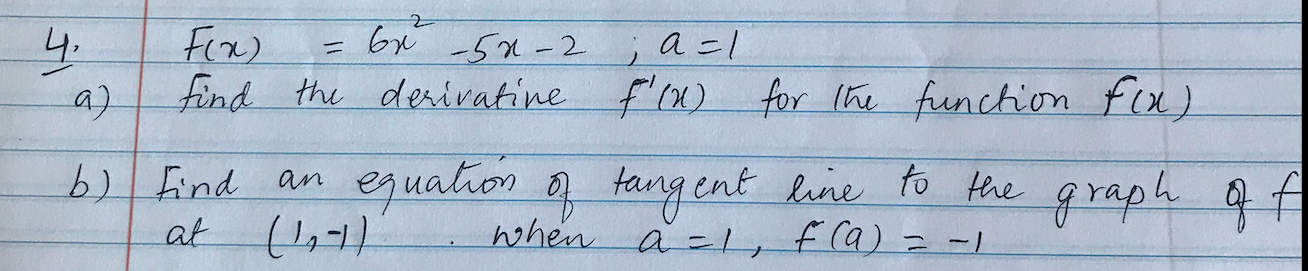 4. F(x) = 6x² -5x -2 ; a =1
a) find the derivative f'(x) for the function f(x)
b) Find an equation of tangent line to the graph of f
at (1,-1) . when a =1, f(a) = -1